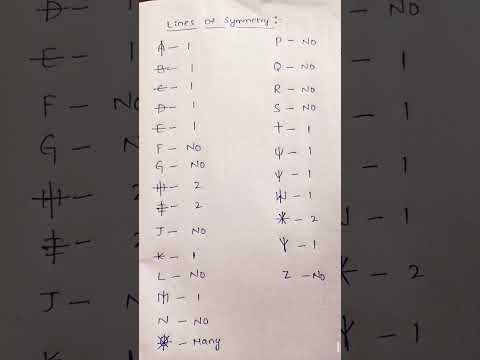 Lines Of Symmetry:-
A - 1
B - 1
C - 1
D - 1
E - 1
F - NO
G - NO
H - 2
I - 2
J - NO
K - 1
L - NO
M - 1
N - NO
O - Many
P - NO
Q - NO
R - NO
S - NO
T - 1
U - 1
V - 1
W - 1
X - 2
Y - 1
Z - NO